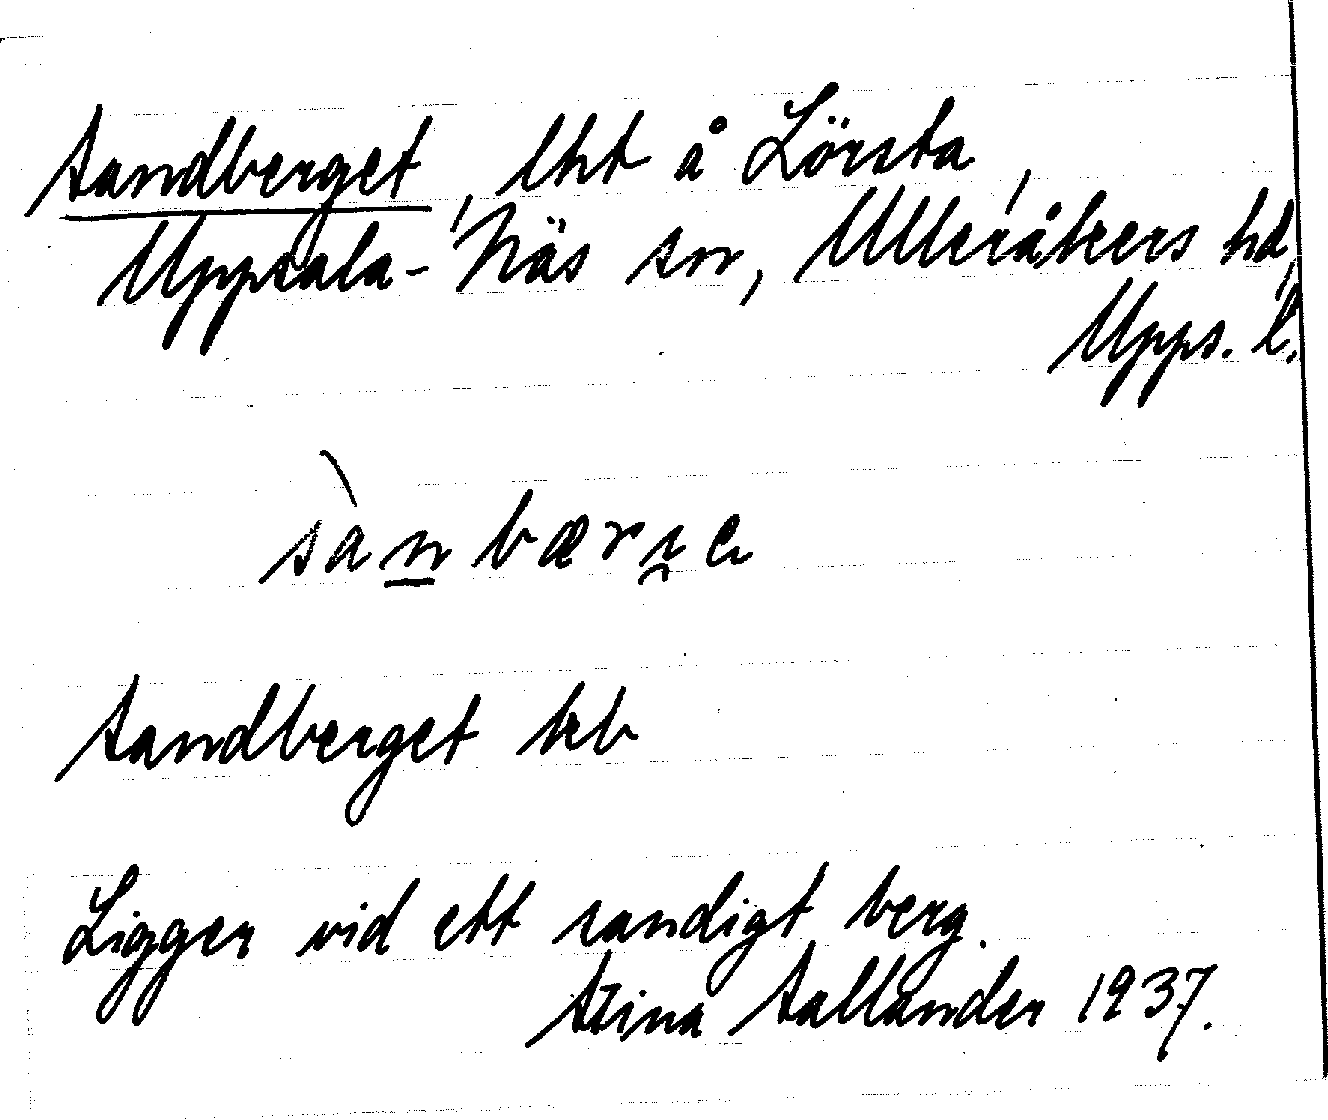 Sandberget, lht å Lörsta,
Uppsala-Näs sn, Ulleråkers hd,
Upps. l.
sànbærɪ̯e
Sandberget kb
Ligger vid ett sandigt berg.
Stina Sallander 1937.